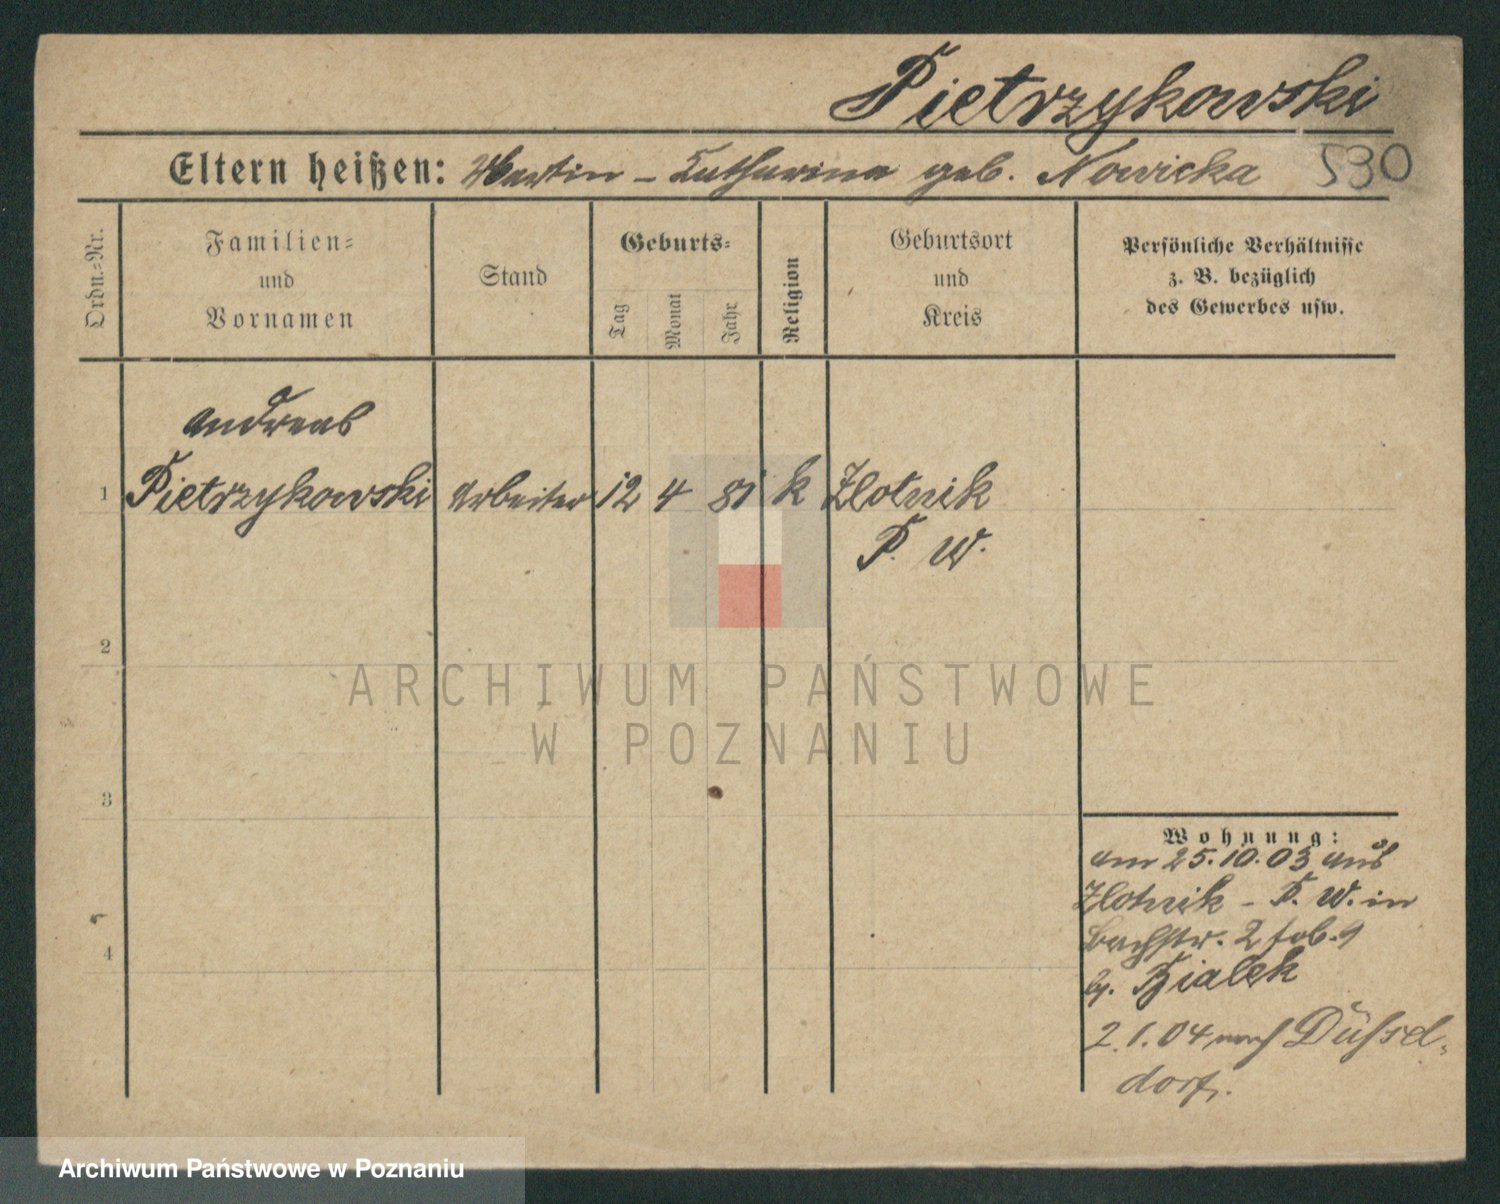 Pietrzykowski
Eltern heißen: Martin - Katharina geb. Nowicka 530
Ordn.-Nr.
Familien-
und
Vornamen
Stand
Geburts-
Tag
Monat
Jahr
Religion
Geburtsort
und
Kreis
Persönliche Verhältnisse
z. B. bezüglich
des Gewerbes usw.
Andreas
1 Pietrzykowski Arbeiter 12 4 81 k Zlotnik
P. W.
2
3
4
Wohnung:
am 25.10.03 aus
Zlotnik - P. W. in
Bachstr. 2
b. Bialek
2.1.04 nach Düssel-
dorf.
ARCHIWUM PAŃSTWOWE
W POZNANIU
Archiwum Państwowe w Poznaniu